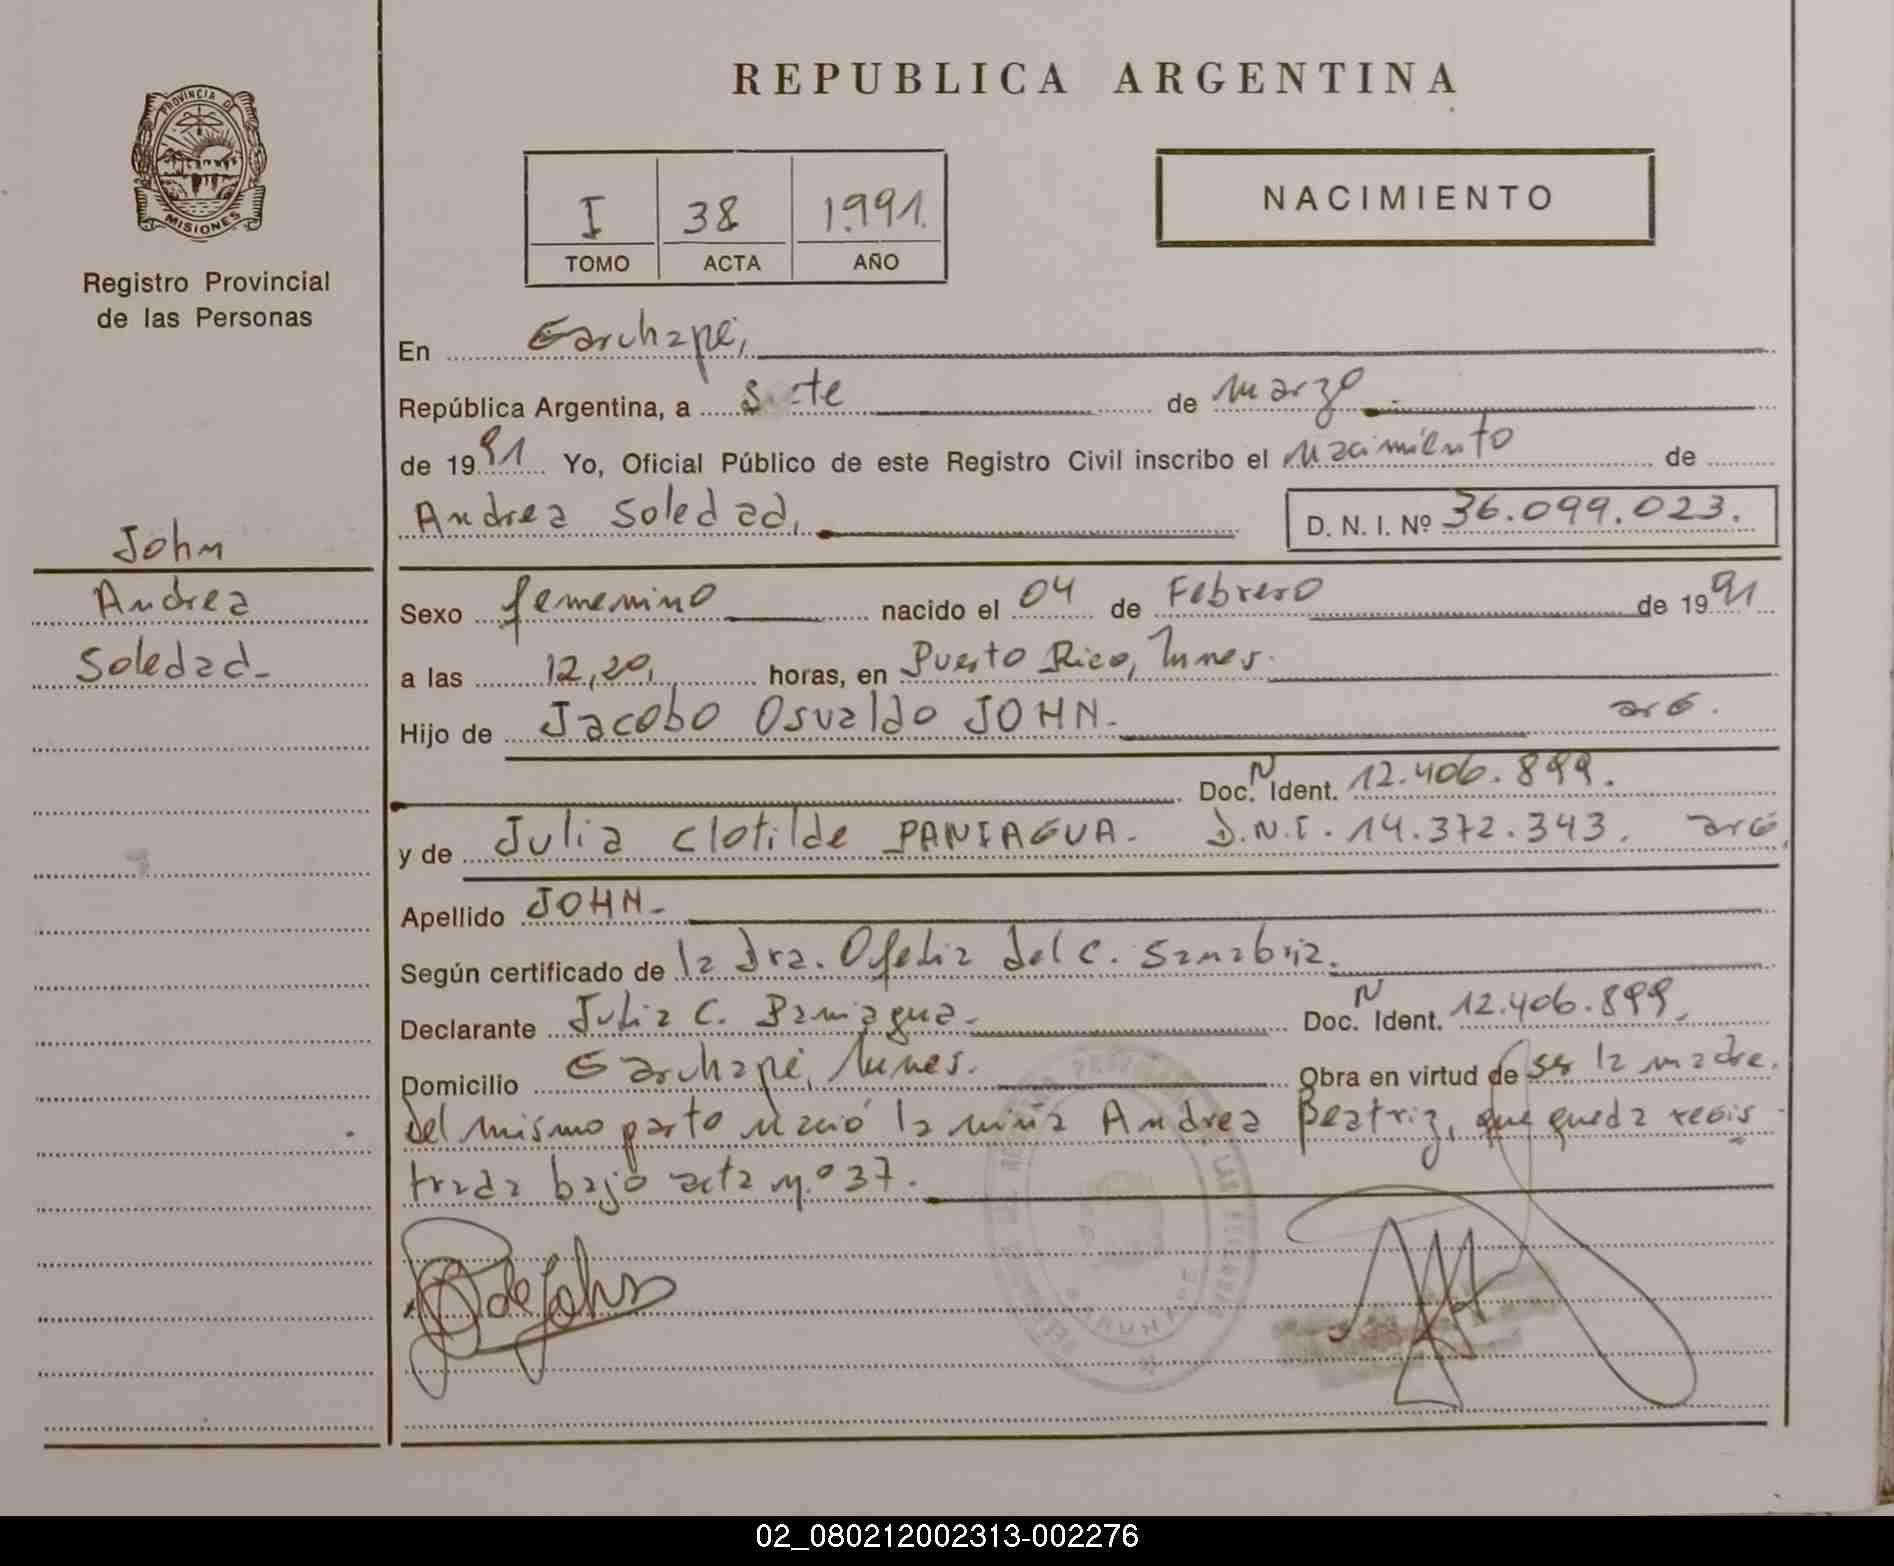 REPUBLICA ARGENTINA
PROVINCIA DE
MISIONES
Registro Provincial
de las Personas
I 38 1.991.
TOMO ACTA AÑO
NACIMIENTO
John
Andrea
Soledad_
En Garuhapé,
República Argentina, a de Marzo
de 1991 Yo, Oficial Público de este Registro Civil inscribo el Nacimiento de
Andrea Soledad,
D. N. I. Nº 36.099.023.
Sexo femenino nacido el 04 de Febrero de 1991
a las 12,20, horas, en Puerto Rico,
Hijo de Jacobo Osvaldo JOHN. arg.
Doc. N Ident. 12.406.899.
y de Julia Clotilde PANIAGUA. D.N.I. 14.372.343. arg
Apellido JOHN_
Según certificado de la Dra. Ofelia del C. Sanabria.
Declarante Julia C. Paniagua_ Doc. N Ident. 12.406.899.
Domicilio Garuhapé, Obra en virtud de ser la madre.
Del mismo parto nació la niña Andrea Beatriz, que queda regis
trada bajo acta n.º 37.
de John
02_080212002313-002276